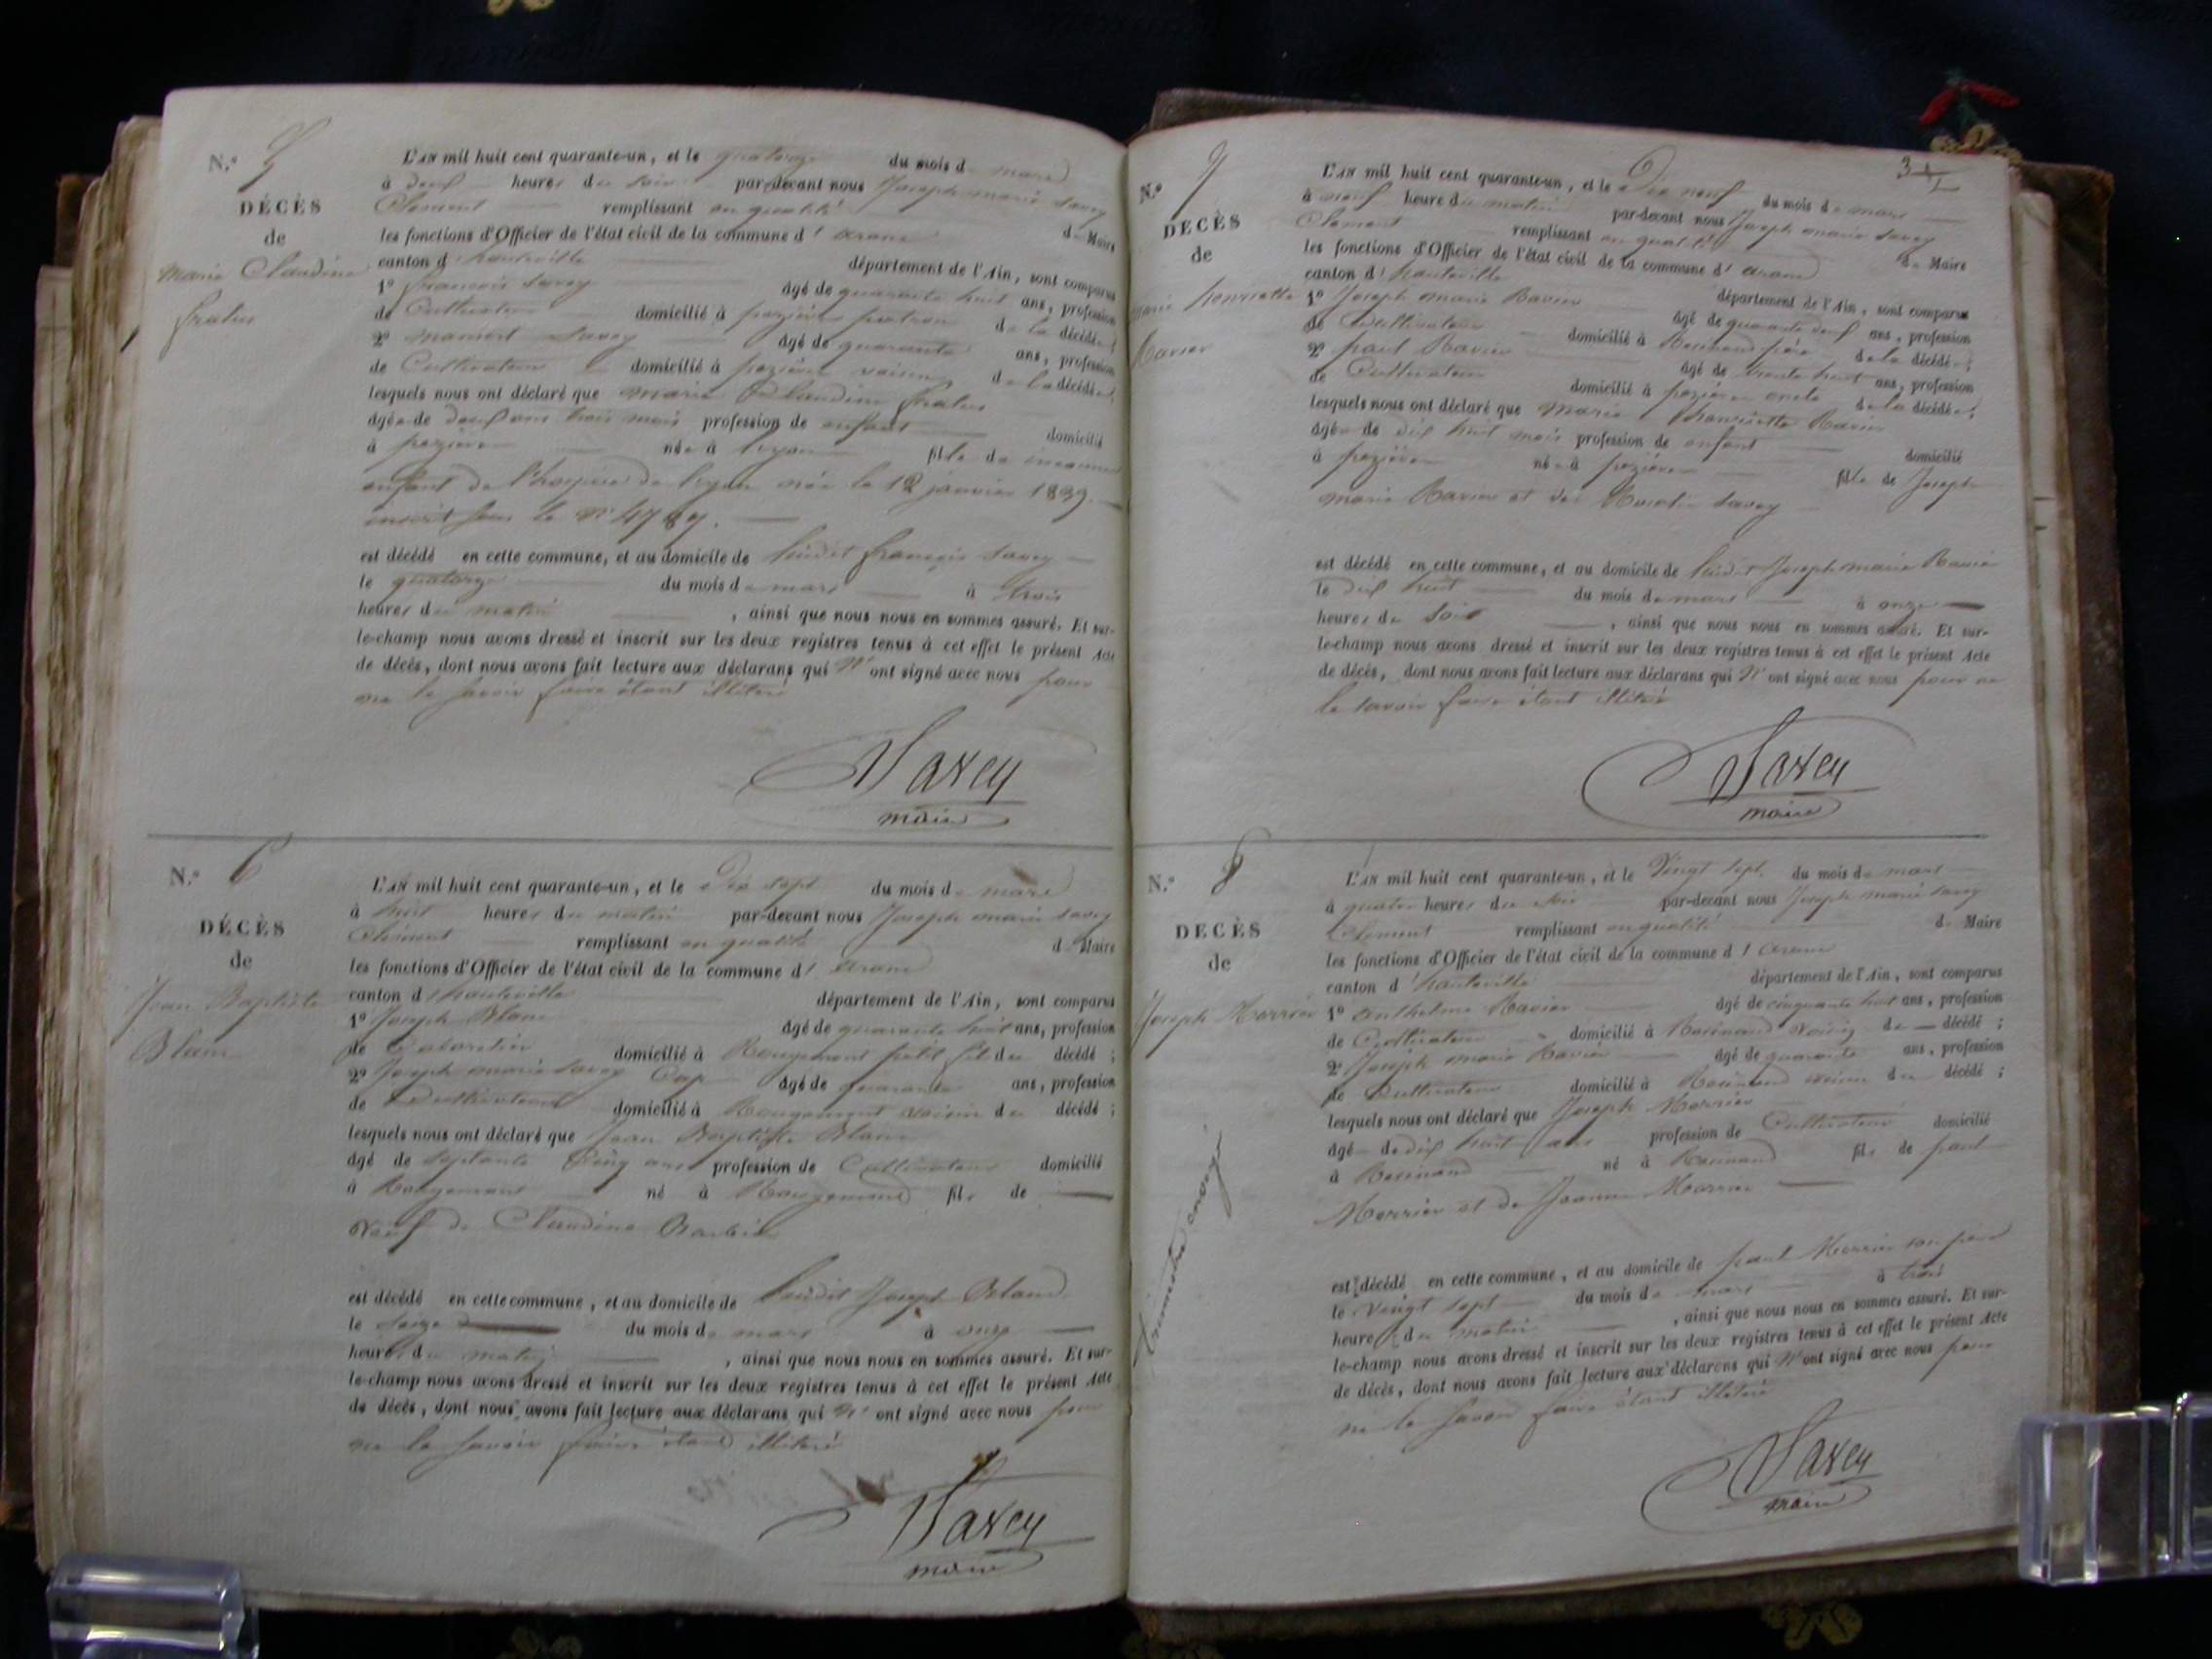 N.º 5
DÉCÈS
de
Marie Claudine
fratus
L'AN mil huit cent quarante-un, et le quatorze du mois de mars
à deux heures du soir par-devant nous Joseph marie Savey
Clément remplissant en qualité de Maire
les fonctions d'Officier de l'état civil de la commune d' aranc
canton d'hauteville département de l'Ain, sont comparus
1º françois Savey âgé de quarante huit ans, profession
de Cultivateur domicilié à pezières patron de la décédée;
2º Savey âgé de quarante ans, profession
de Cultivateur domicilié à pezières voisin de la décédée;
lesquels nous ont déclaré que marie Claudine fratus
âgée de deux ans trois mois profession de enfant domicilié
à pezières née à Lyon fille de inconnus
enfant de l'hospice de Lyon née le 12 janvier 1839.
inscrit sous le nº 4787.
est décédé en cette commune, et au domicile de susdit françois Savey
le quatorze du mois de mars à trois
heures du matin, ainsi que nous nous en sommes assuré. Et sur-
le-champ nous avons dressé et inscrit sur les deux registres tenus à cet effet le présent Acte
de décès, dont nous avons fait lecture aux déclarans qui n'ont signé avec nous pour
ne le savoir faire étant illitéré
Savey
maire
N.º 6
DÉCÈS
de
Jean Baptiste
Blanc
L'AN mil huit cent quarante-un, et le Dix sept du mois de mars
à huit heures du matin par-devant nous Joseph marie Savey
Clément remplissant en qualité de Maire
les fonctions d'Officier de l'état civil de la commune d' aranc
canton d'hauteville département de l'Ain, sont comparus
1º Joseph Blanc âgé de quarante huit ans, profession
de domicilié à Rougemont petit fils du décédé;
2º Joseph marie Savey Cap âgé de quarante ans, profession
de Cultivateur domicilié à Rougemont voisin du décédé;
lesquels nous ont déclaré que Jean Baptiste Blanc
âgé de septante cinq ans profession de Cultivateur domicilié
à Rougemont né à Rougemont fils de
Veuf de Claudine
est décédé en cette commune, et au domicile de susdit Joseph Blanc
le Seize du mois de mars à onze
heures du matin, ainsi que nous nous en sommes assuré. Et sur-
le-champ nous avons dressé et inscrit sur les deux registres tenus à cet effet le présent Acte
de décès, dont nous avons fait lecture aux déclarans qui n'ont signé avec nous pour
ne le savoir faire étant illitéré
Savey
maire
3
N.º 7
DÉCÈS
de
marie henriette
Ravier
L'AN mil huit cent quarante-un, et le Dix neuf du mois de mars
à neuf heure du matin par-devant nous Joseph marie Savey
Clément remplissant en qualité de Maire
les fonctions d'Officier de l'état civil de la commune d' aranc
canton d'hauteville département de l'Ain, sont comparus
1º Joseph marie Ravier âgé de quarante deux ans, profession
de Cultivateur domicilié à Resinand père de la décédée;
2º paul Ravier âgé de trente huit ans, profession
de Cultivateur domicilié à pezières oncle de la décédée;
lesquels nous ont déclaré que Marie henriette Ravier
âgée de dix huit mois profession de enfant domicilié
à pezières née à pezières fille de Joseph
marie Ravier et de Savey
est décédé en cette commune, et au domicile de susdit Joseph marie Ravier
le dix huit du mois de mars à onze
heures du soir, ainsi que nous nous en sommes assuré. Et sur-
le-champ nous avons dressé et inscrit sur les deux registres tenus à cet effet le présent Acte
de décès, dont nous avons fait lecture aux déclarans qui n'ont signé avec nous pour ne
le savoir faire étant illitéré
Savey
maire
N.º 8
DÉCÈS
de
Joseph Merrier
L'AN mil huit cent quarante-un, et le Vingt sept du mois de mars
à quatre heures du soir par-devant nous Joseph marie Savey
Clément remplissant en qualité de Maire
les fonctions d'Officier de l'état civil de la commune d' aranc
canton d'hauteville département de l'Ain, sont comparus
1º anthelme Ravier âgé de cinquante huit ans, profession
de Cultivateur domicilié à Resinand voisin du décédé;
2º Joseph marie Ravier âgé de quarante ans, profession
de Cultivateur domicilié à Resinand voisin du décédé;
lesquels nous ont déclaré que Joseph Merrier
âgé de dix huit ans profession de Cultivateur domicilié
à Resinand né à Resinand fils de paul
Merrier et de Jeanne Merrier
est décédé en cette commune, et au domicile de paul Merrier son père
le Vingt sept du mois de mars à trois
heure du matin, ainsi que nous nous en sommes assuré. Et sur-
le-champ nous avons dressé et inscrit sur les deux registres tenus à cet effet le présent Acte
de décès, dont nous avons fait lecture aux déclarans qui n'ont signé avec nous pour
ne le savoir faire étant illitéré
Savey
maire
trimestre envoyé